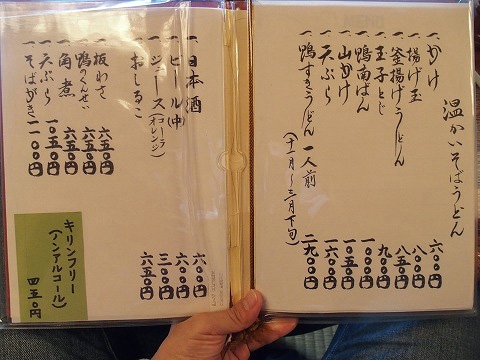 温かいそばうどん
一、かけ 六〇〇円
一、揚げ玉 八〇〇円
一、釜揚げうどん 八五〇円
一、玉子とじ 九〇〇円
一、鴨南ばん 一〇〇〇円
一、山かけ 一〇五〇円
一、天ぷら 一六〇〇円
一、鴨すきうどん 一人前 二九〇〇円
(十一月〜三月下旬)
一、日本酒 六〇〇円
一、ビール(中) 六〇〇円
一、ジュース(コーラ オレンジ) 三〇〇円
一、おしるこ 六五〇円
一、板わさ 六五〇円
一、鴨のんせい 六五〇円
一、角煮 六五〇円
一、天ぷら 一〇五〇円
一、そばがき 一一〇〇円
キリンフリー
(ノンアルコール)
四五〇円